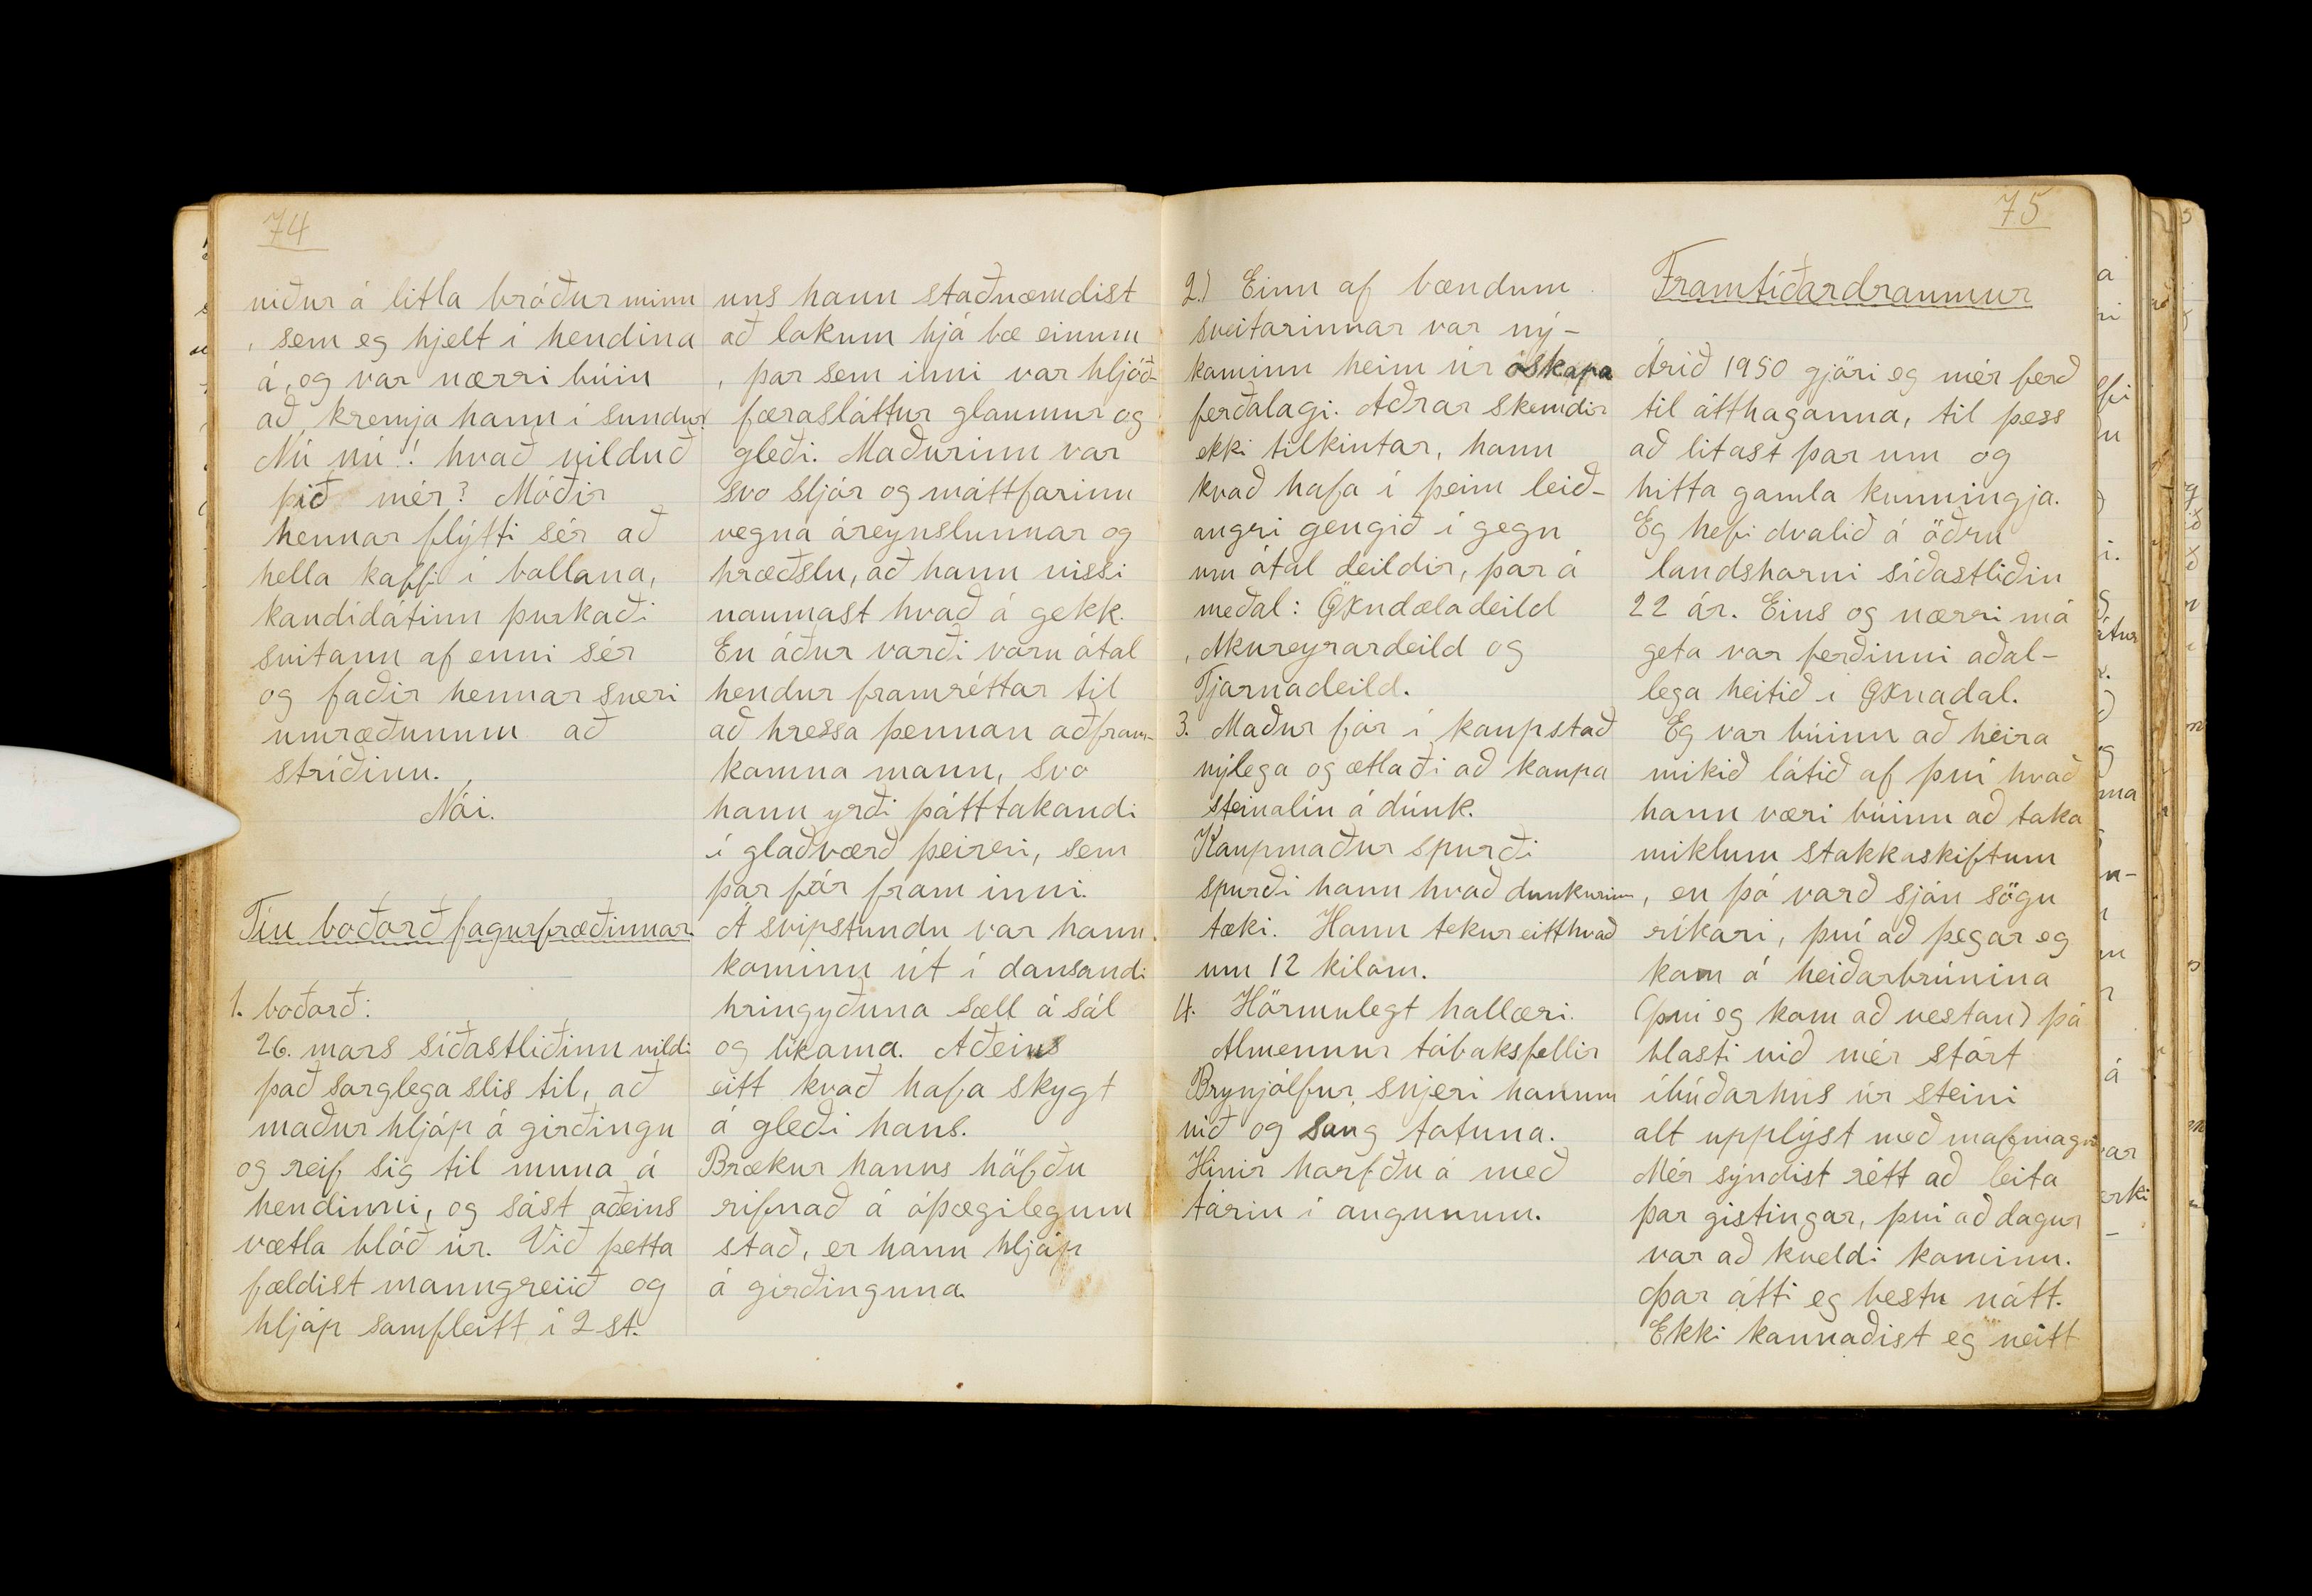 74
niður á litla bróður minn
, sem eg hjelt í hendina
á, og var nærri búin
að kremja hann í sundur.
Nú nú!! hvað vilduð
þið mér? Móðir
hennar flýtti sér að
hella kaffi í bollana,
kandídátinn þurkaði
svitann af enni sér
og faðir hennar sneri
umræðunum að
stríðinu.
Nói.
Tíu boðorð fagurfræðinnar.
1. boðorð:
26. mars síðastliðinn vildi
það sorglega slis til, að
maður hljóp á girðingu
og reif sig til muna á
hendinni, og sást aðeins
vætla blóð úr. Við þetta
fældist manngreiið og
hljóp samfleitt í 2 st.
uns hann staðnæmdist
að lokum hjá bæ einum
, þar sem inni var hljóð-
færasláttur glaumur og
gleði. Maðurinn var
svo sljór og máttfarinn
vegna áreynslunnar og
hræðslu, að hann vissi
naumast hvað á gekk.
En áður varði voru ótal
hendur framréttar til
að hressa þennan aðfram-
komna mann, svo
hann yrði þátttakandi
í glaðværð þeirri, sem
þar fór fram inni.
Á svipstundu var hann
kominn út í dansandi
hringyðuna sæll á sál
og líkama. Aðeins
eitt kvað hafa skygt
á gleði hans.
Brækur hanns höfðu
rifnað á óþægilegum
stað, er hann hljóp
á girðinguna.
75
2.) Einn af bændum
sveitarinnar var ný-
kominn heim úr óskapa
ferðalagi. Aðrar skemdir
ekki tilkintar, hann
kvað hafa í þeim leið-
angri gengið í gegn
um ótal deildir, þar á
meðal: Öxndæladeild
, Akureyrardeild og
Tjarnadeild.
3. Maður fór í kaupstað
nýlega og ætlaði að kaupa
steinolín á dúnk.
Kaupmaður spurði
spurði hann hvað dunkurinn
tæki. Hann tekur eitthvað
um 12 kílom.
4. Hörmulegt hallæri.
Almennur tóbaksfellir
Brynjólfur snjeri honum
við og saug totuna.
Hinir horfðu á með
tárin í augunum.
Framtíðardraumur
Árið 1950 gjöri eg mér ferð
til átthaganna, til þess
að litast þar um og
hitta gamla kunningja.
Eg hefi dvalið á öðru
landshorni síðastliðin
22 ár. Eins og nærri má
geta var ferðinni aðal-
lega heitið í Öxnadal.
Eg var búinn að heira
mikið látið af því hvað
hann væri búinn að taka
miklum stakkaskiftum
, en þó varð sjón sögu
ríkari, því að þegar eg
kom á heiðarbrúnina
(því eg kom að vestan) þá
blasti við mér stórt
íbúðarhús úr steini
alt upplýst með rafmagni
Mér sýndist rétt að leita
þar gistingar, því að dagur
var að kveldi kominn.
Þar átti eg bestu nátt.
Ekki kannaðist eg neitt